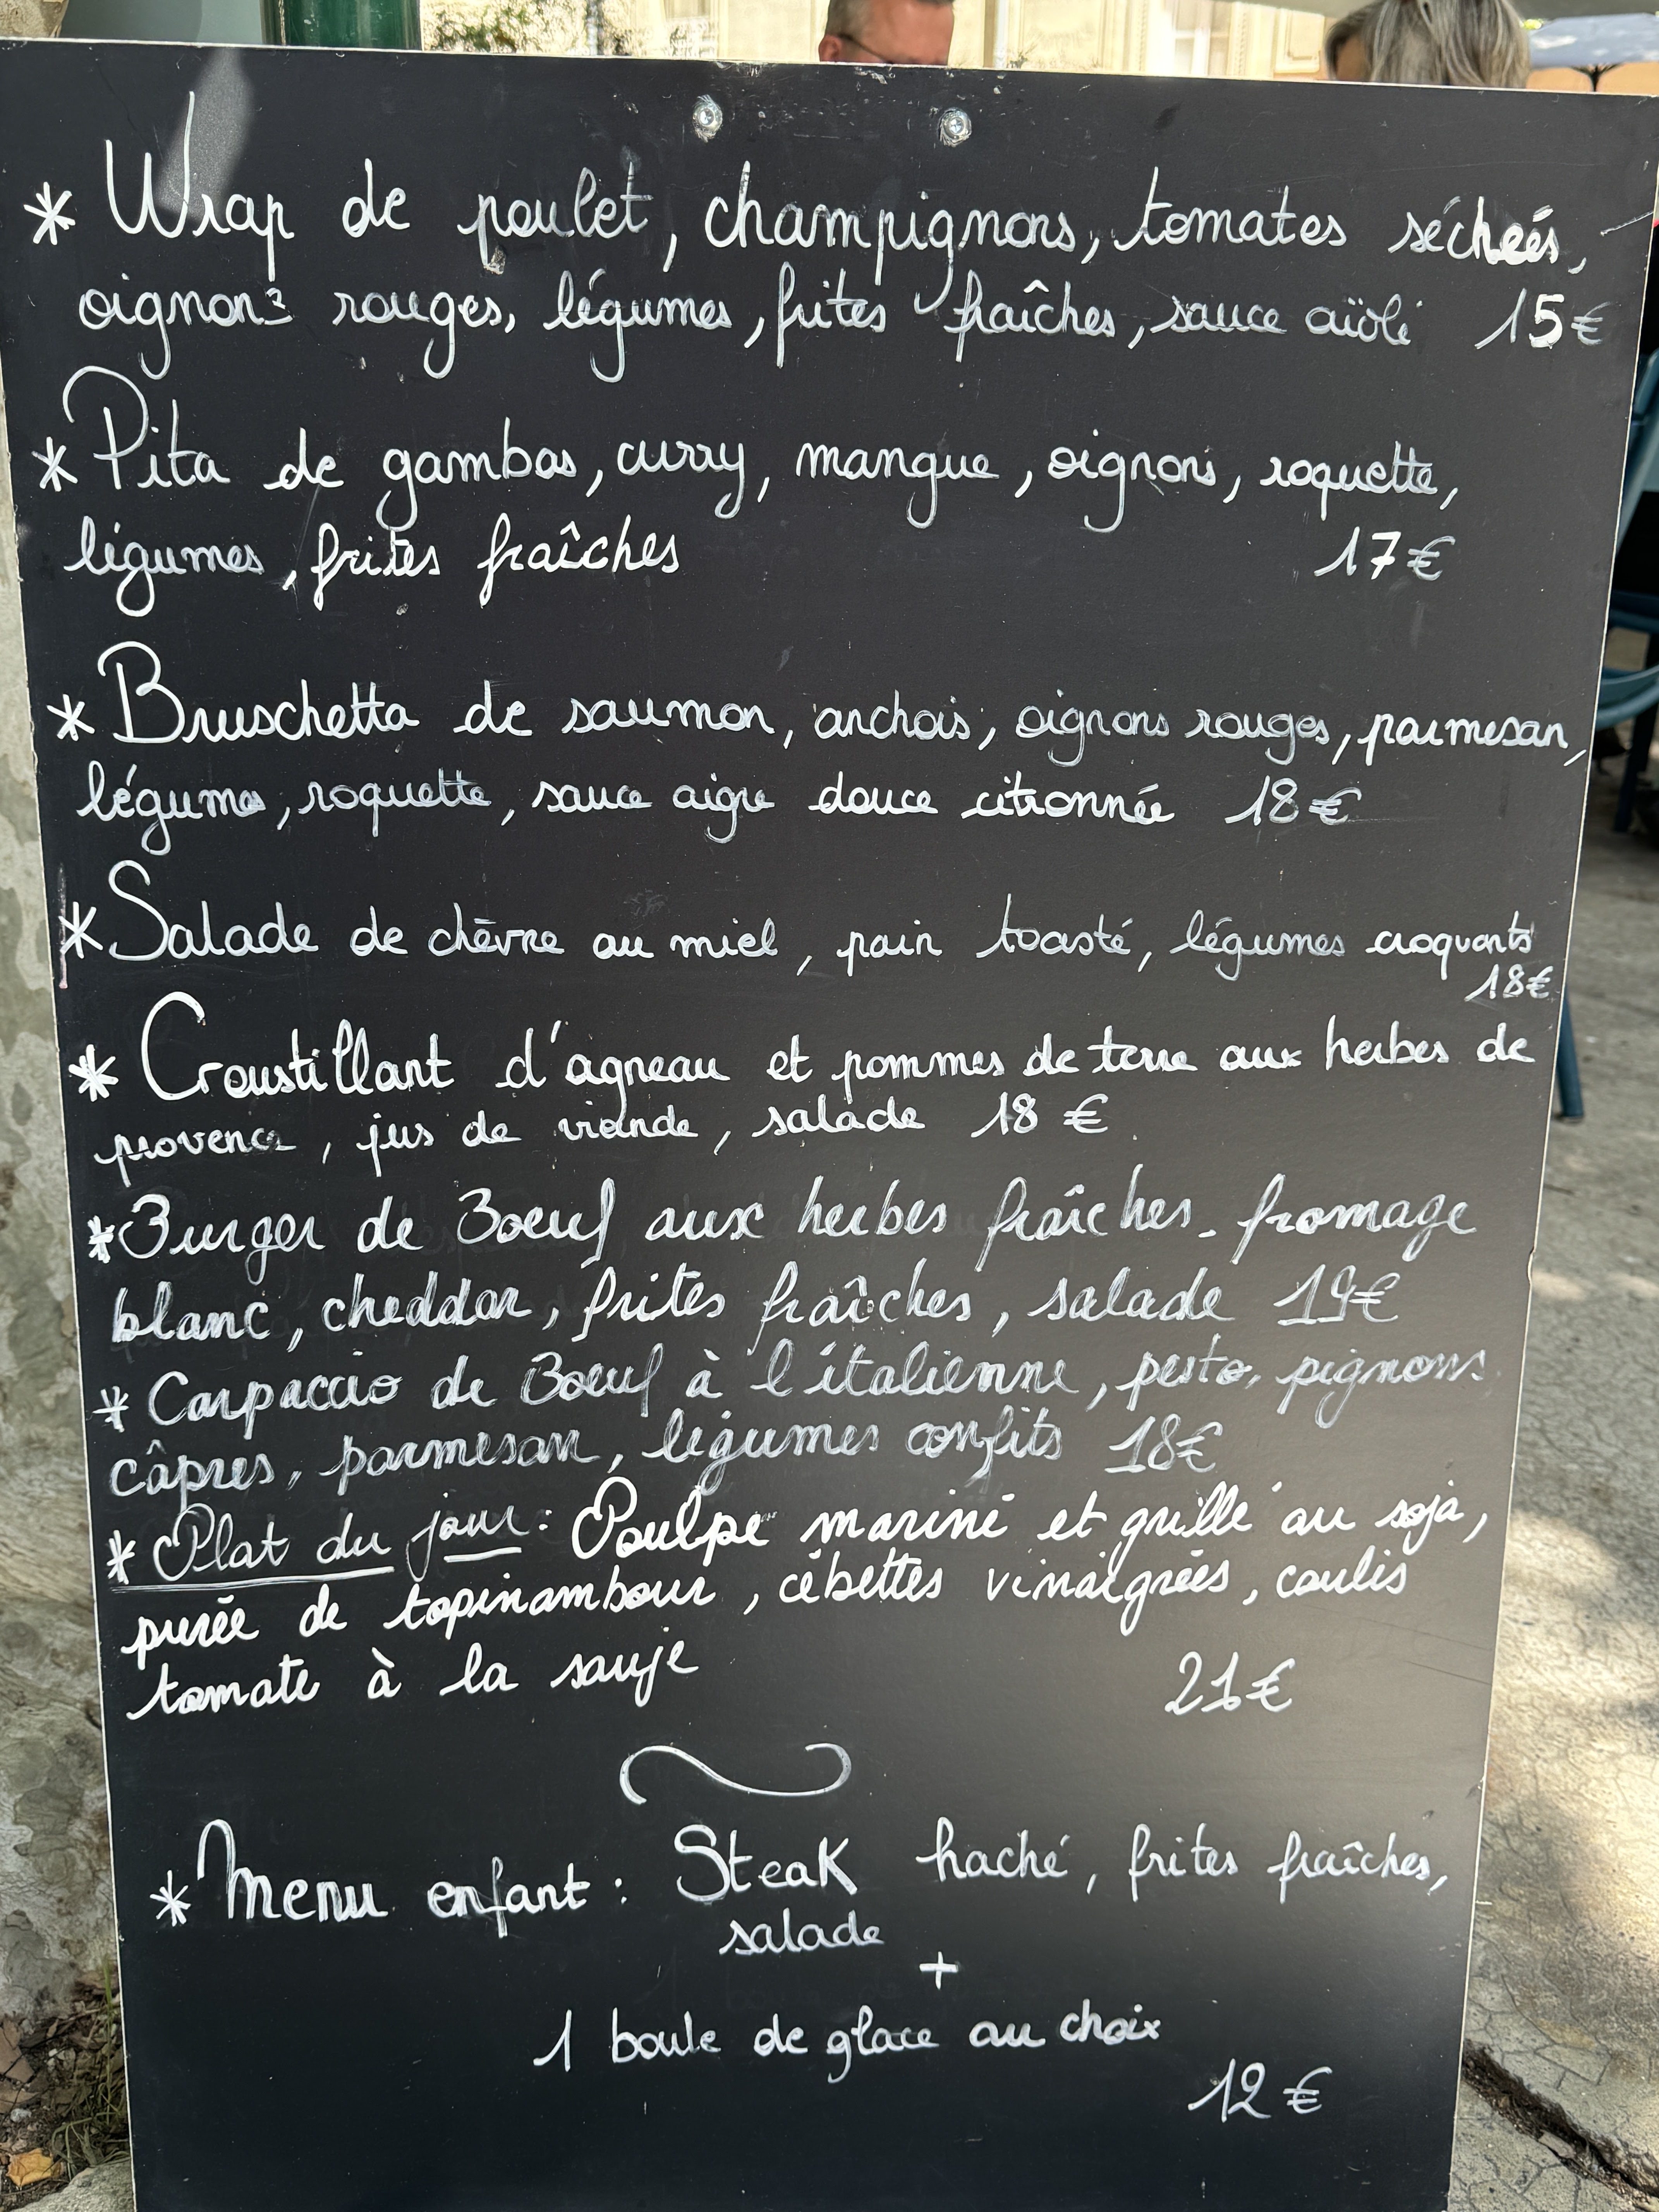 * Wrap de poulet, champignons, tomates séchées,
oignons rouges, légumes, frites fraîches, sauce aïoli 15€
* Pita de gambas, curry, mangue, oignons, roquette,
légumes, frites fraîches 17€
* Bruschetta de saumon, anchois, oignons rouges, parmesan,
légumes, roquette, sauce aigre douce citronnée 18€
* Salade de chèvre au miel, pain toasté, légumes croquants
18€
* Croustillant d'agneau et pommes de terre aux herbes de
provence, jus de viande, salade 18 €
* Burger de Boeuf aux herbes fraîches, fromage
blanc, cheddar, frites fraîches, salade 19€
* Carpaccio de Boeuf à l'italienne, pesto, pignons
câpres, parmesan, légumes confits 18€
* Plat du jour : Poulpe mariné et grillé au soja,
purée de topinambour, cébettes vinaigrées, coulis
tomate à la sauje 21€
* Menu enfant : Steak haché, frites fraîches,
salade
+
1 boule de glace au choix
12 €